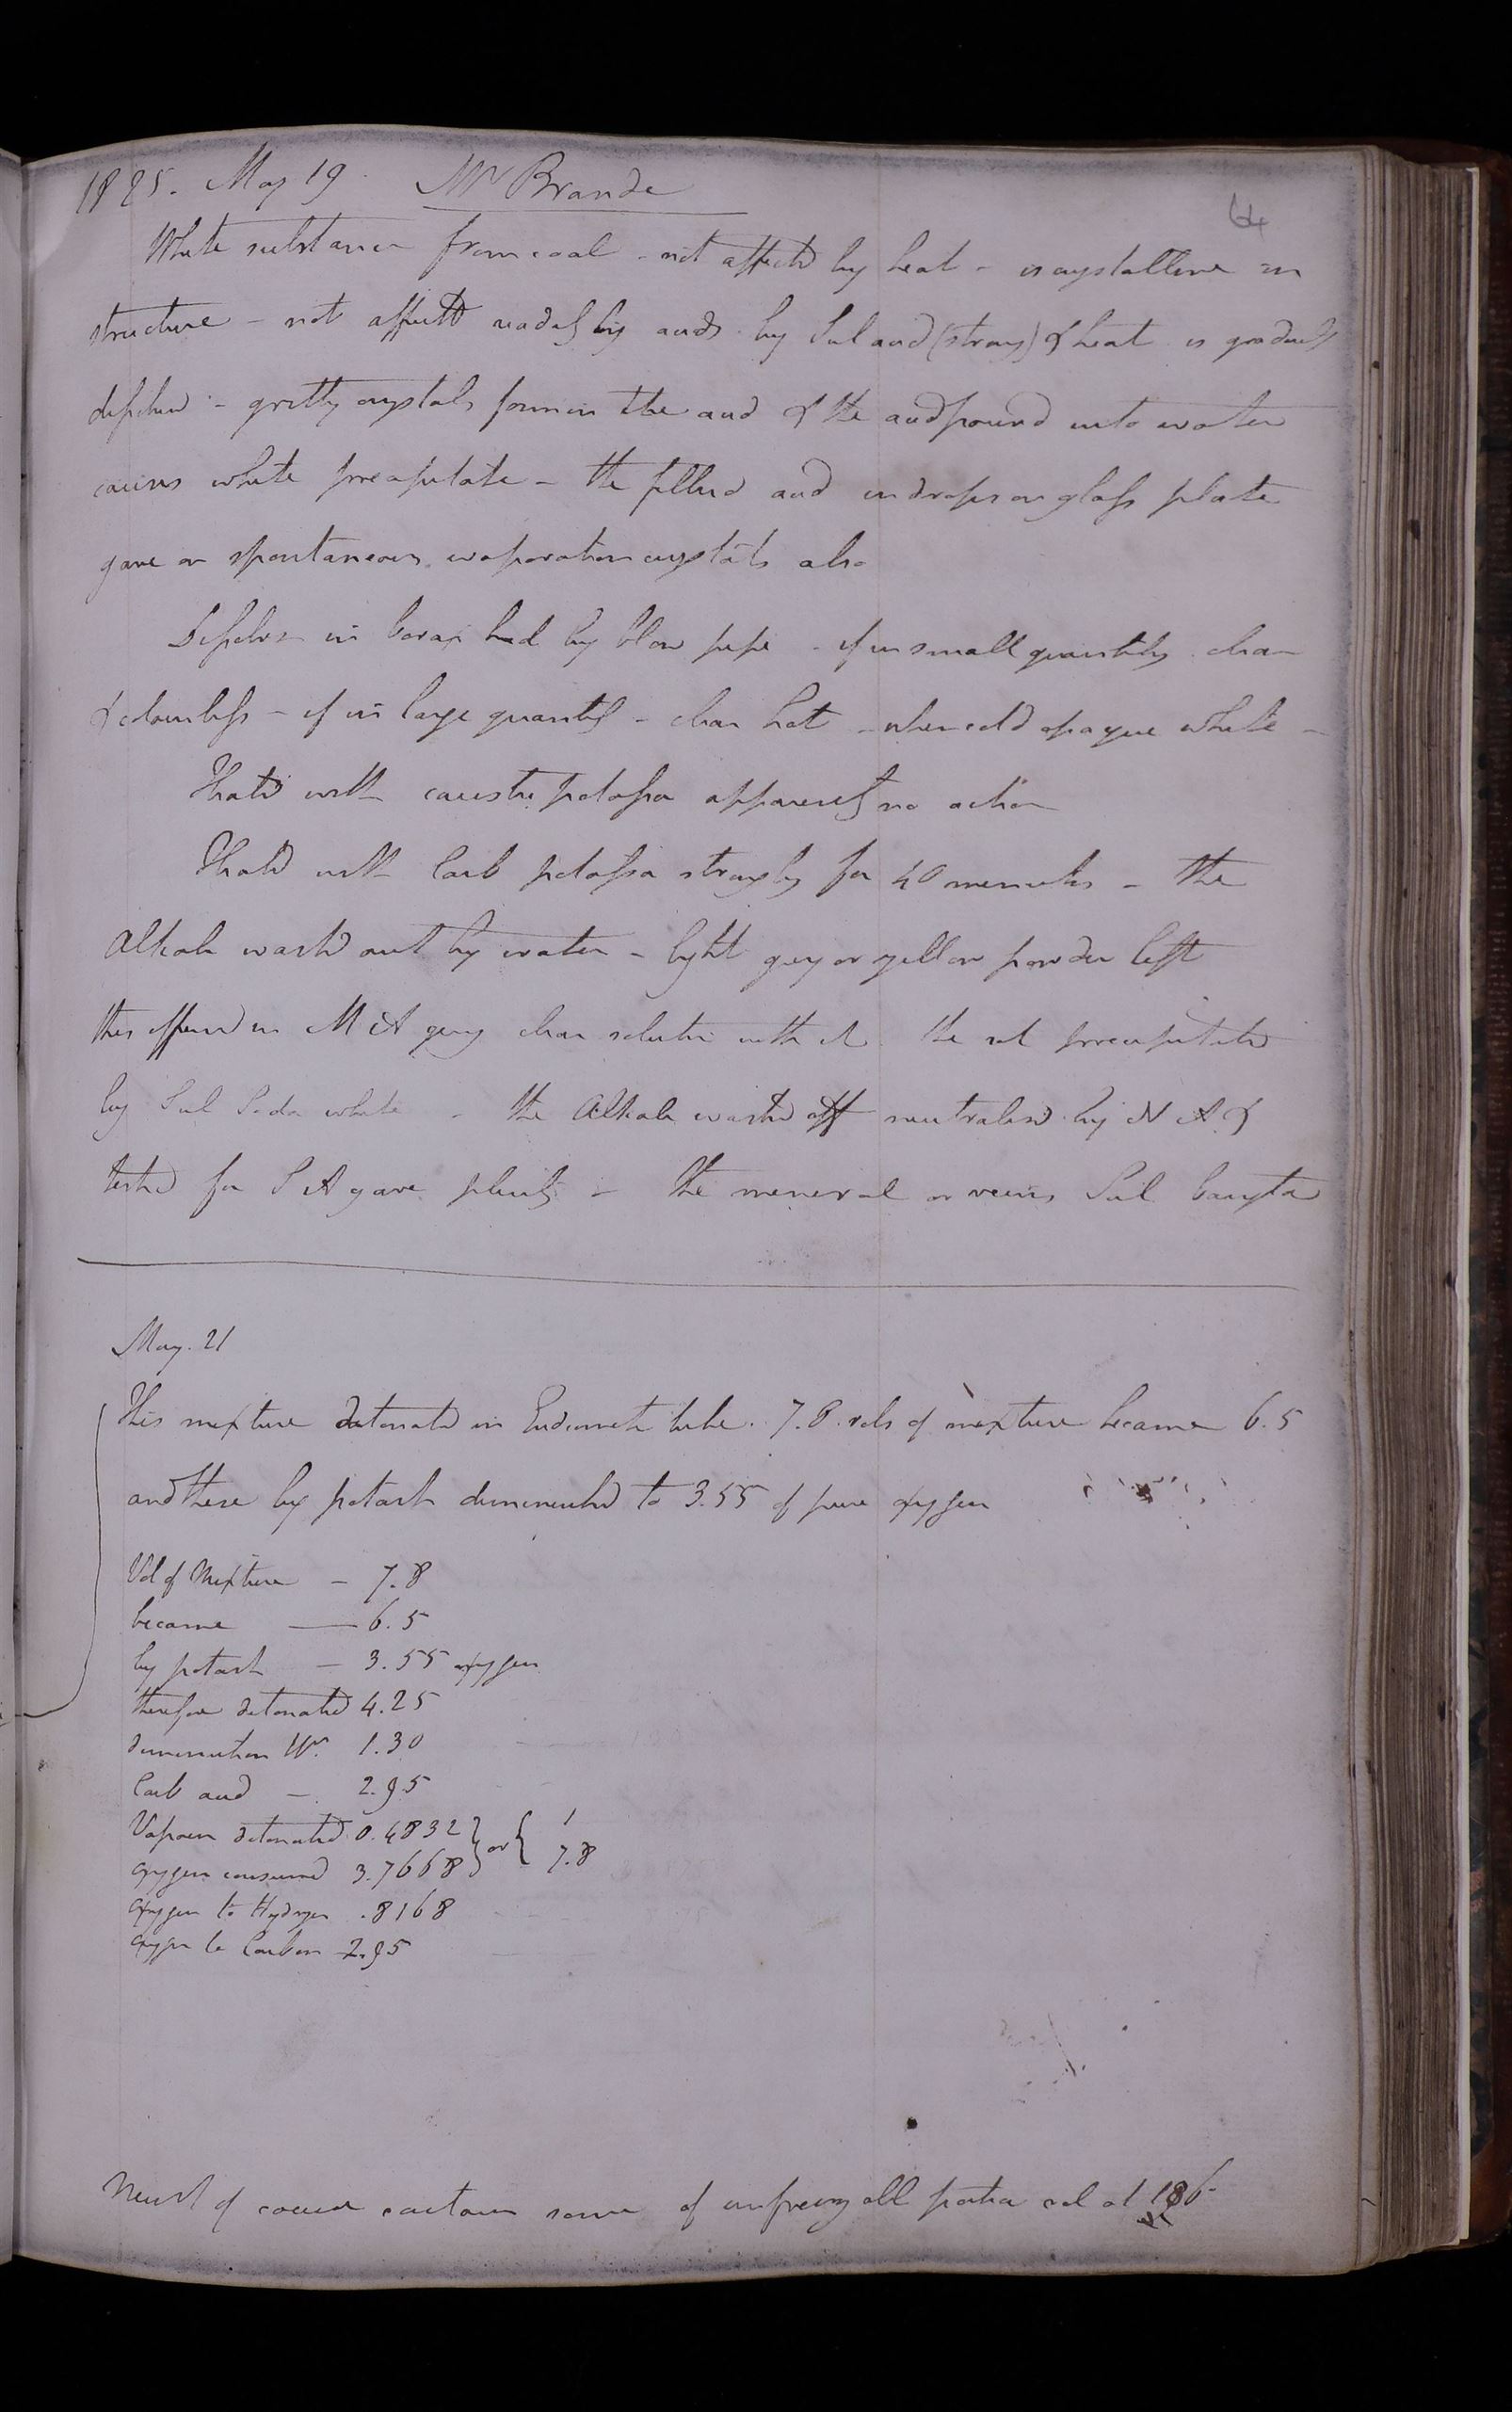 1825. May 19. Mr Brande
64
White substance from coal - not affected by heat - is crystalline in
structure - not affected readily by acids. by Sul acid (strong) & heat is gradually
dissolved - gritty crystals form in the acid & the acid poured into water
causes white precipitate - the filtered acid in drops on glass plate
gave on spontaneous evaporation crystals also
Dissolves in borax bead by blow pipe - if in small quantity clear
& colourless - if in large quantity - clear hot - when cold opaque white -
Heated with caustic potassa apparently no action
Heated with Carb potassa strongly for 40 minutes - the
Alkali washed out by water - light grey or yellow powder left
this effervd in M A giving clear solution with it the sol precipitated
by Sul Soda white - the Alkali washed off neutralised by N A &
tested for S A gave plenty - the mineral Sul baryta
May. 21
This mixture detonated in Eudiometer tube. 7.8 vols of mixture became 6.5
and these by potash diminished to 3.55 of pure oxygen
Vol of Mixture - 7.8
became — 6.5
by potash - 3.55 oxygen
therefore detonated 4.25
diminution Wr. 1.30
Carb acid - 2.95
Vapour detonated 0.4832 } or { 1
oxygen consumed 3.7668 } { 7.8
oxygen to Hydrogen .8168
oxygen to Carbon 2.95
Must of course contain some of unfreezable portion at 186°